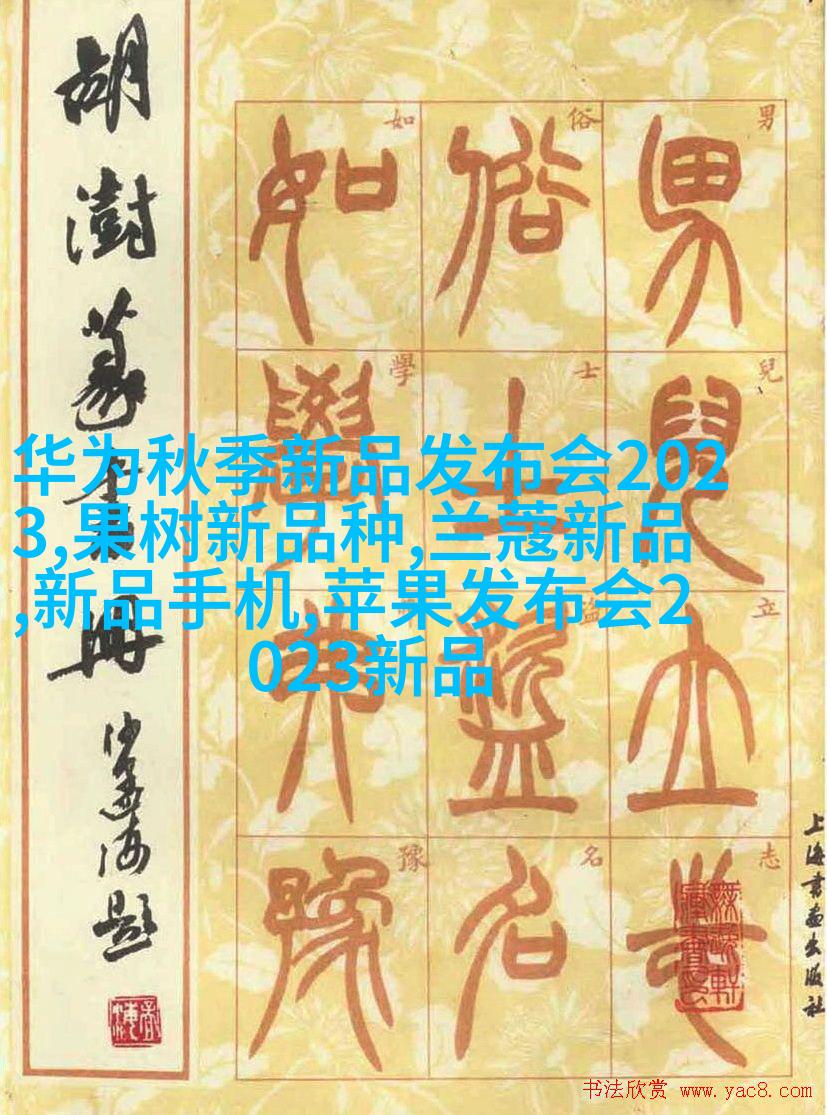 胡澍篆書冊
沙孟海題
男兒立志
俗士盜名
如學夫豫
男
俗
如
兒
士
學
立
盜
志
名
豫
华为秋季新品发布会202
3,果树新品种,兰蔻新品
,新品手机,苹果发布会2
023新品
上海書畫出版社
书法欣赏 www.yac8.com